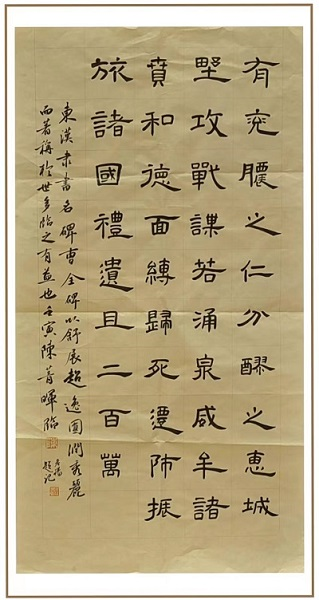 有兖膿之仁分醪之惠城
埜攻戰謀若涌泉威牟諸
賁和德面縛歸死還師振
旅諸國禮遺且二百萬
東漢隶書名碑曹全碑以舒展超逸圓潤秀麗
而著稱於世多臨之有益也壬寅陳菁暉臨
題记